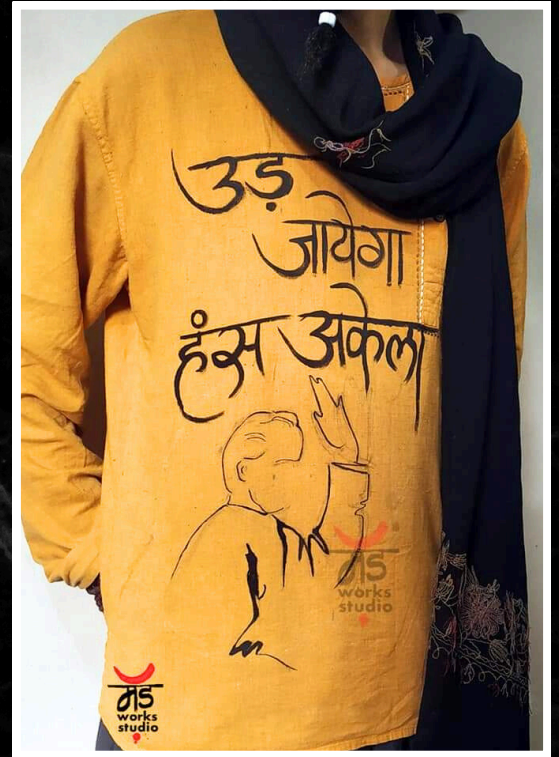 उड़
जायेगा
हंस अकेला
मंड
works
studio
मंड
works
studio